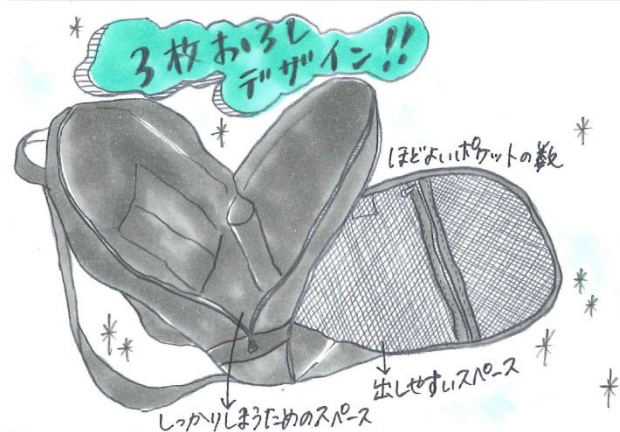 3枚おろし
デザイン!!
ほどよいポケットの数
出しやすいスペース
しっかりしまうためのスペース